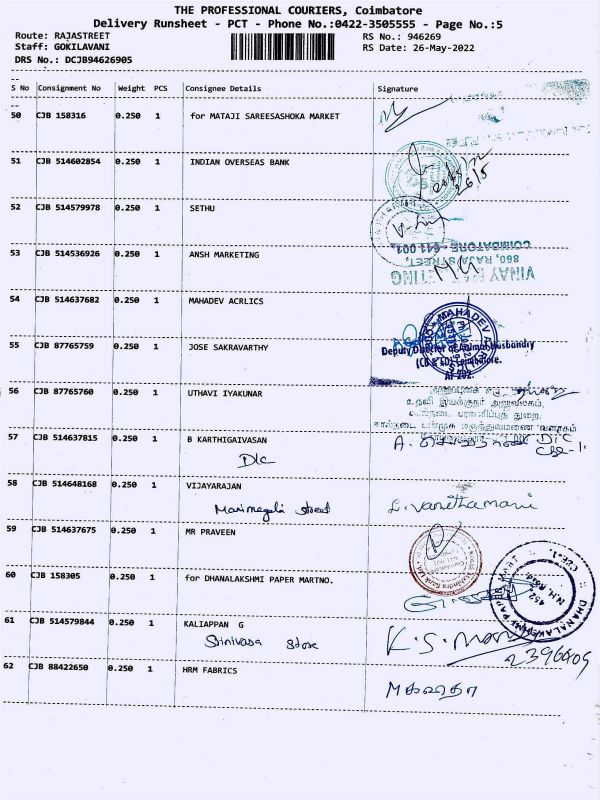 THE PROFESSIONAL COURIERS, Coimbatore
Delivery Runsheet - PCT - Phone No.:0422-3505555 - Page No.:5
Route: RAJASTREET
Staff: GOKILAVANI
DRS No.: DCJB94626905
RS No.: 946269
RS Date: 26-May-2022
S No Consignment No Weight PCS Consignee Details Signature
50 CJB 158316 0.250 1 for MATAJI SAREESASHOKA MARKET
51 CJB 514602854 0.250 1 INDIAN OVERSEAS BANK
26/5
52 CJB 514579978 0.250 1 SETHU
53 CJB 514536926 0.250 1 ANSH MARKETING
VINAY MARKETING
860, RAJA STREET,
COIMBATORE - 641 001.
54 CJB 514637682 0.250 1 MAHADEV ACRLICS
MAHADEV
55 CJB 87765759 0.250 1 JOSE SAKRAVARTHY
Deputy Director of Animal Husbandry
56 CJB 87765760 0.250 1 UTHAVI IYAKUNAR
57 CJB 514637815 0.250 1 B KARTHIGAIVASAN
DIC
DIC
58 CJB 514648168 0.250 1 VIJAYARAJAN
street
59 CJB 514637675 0.250 1 MR PRAVEEN
60 CJB 158305 0.250 1 for DHANALAKSHMI PAPER MARTNO.
DHANALAKSHMI PAPER MART
452
N.H. Road,
61 CJB 514579844 0.250 1 KALIAPPAN G
Srinivasa Store
K.S. Mani
62 CJB 88422650 0.250 1 HRM FABRICS